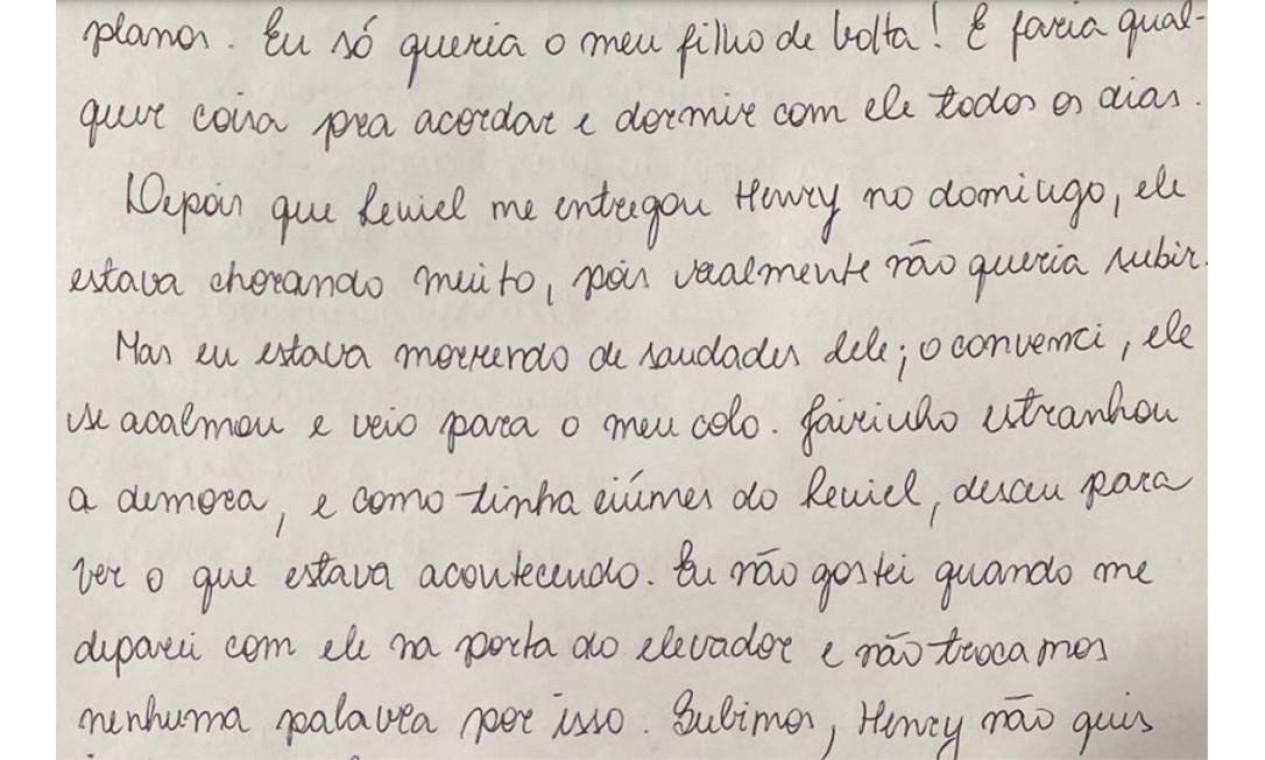 planos. Eu só queria o meu filho de volta! E faria qual-
quer coisa pra acordar e dormir com ele todos os dias.
Depois que Leniel me entregou Henry no domingo, ele
estava chorando muito, pois realmente não queria subir.
Mas eu estava morrendo de saudades dele; o convenci, ele
se acalmou e veio para o meu colo. Jairinho estranhou
a demora, e como tinha ciúmes do Leniel, desceu para
ver o que estava acontecendo. Eu não gostei quando me
deparei com ele na porta do elevador e não trocamos
nenhuma palavra por isso. Subimos, Henry não quis